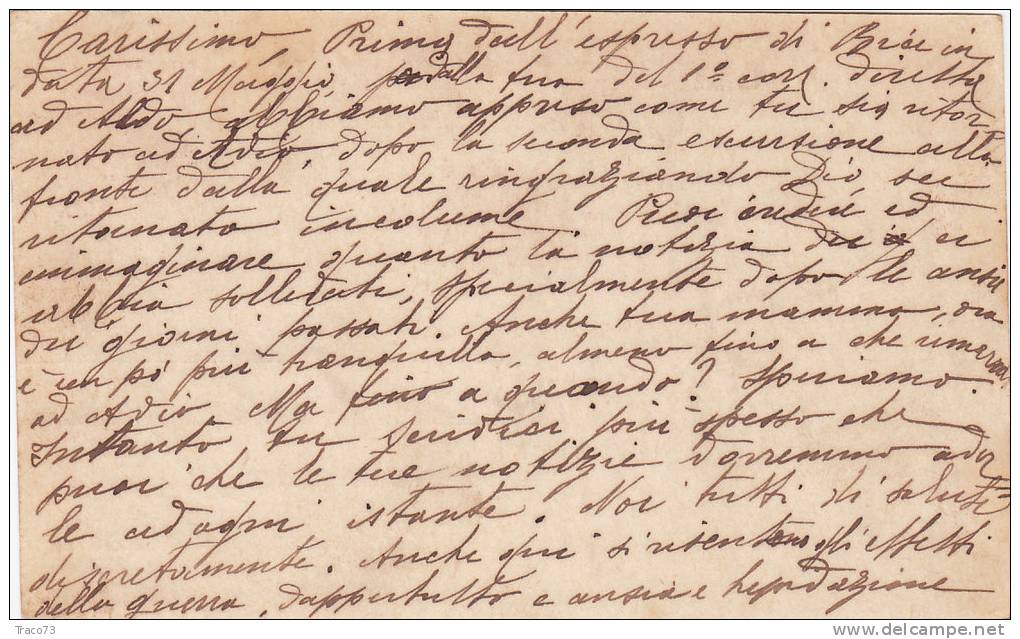 Carissimo Prima dall'espresso di Bice in
data 31 Maggio dalla tua del 1º corr. diretta
ad Aldo abbiamo appreso come tu sia ritor-
nato ad Adio, dopo la seconda escursione alla
fronte dalla quale ringraziando Dio, sei
ritornato incolume. Puoi credere ed
immaginare quanto la notizia ci
abbia sollevati, specialmente dopo le ansie
dei giorni passati. Anche tua mamma, ora
è un pò più tranquilla, almeno fino a che rimarrai
ad Adio. Ma fino a quando? Speriamo.
Intanto tu scrivici più spesso che
puoi che le tue notizie vorremmo
le ad ogni istante. Noi tutti di salute
discretamente. Anche qui si risentono gli effetti
della guerra, dappertutto e ansia e trepidazione
Traco73
delcampe.net